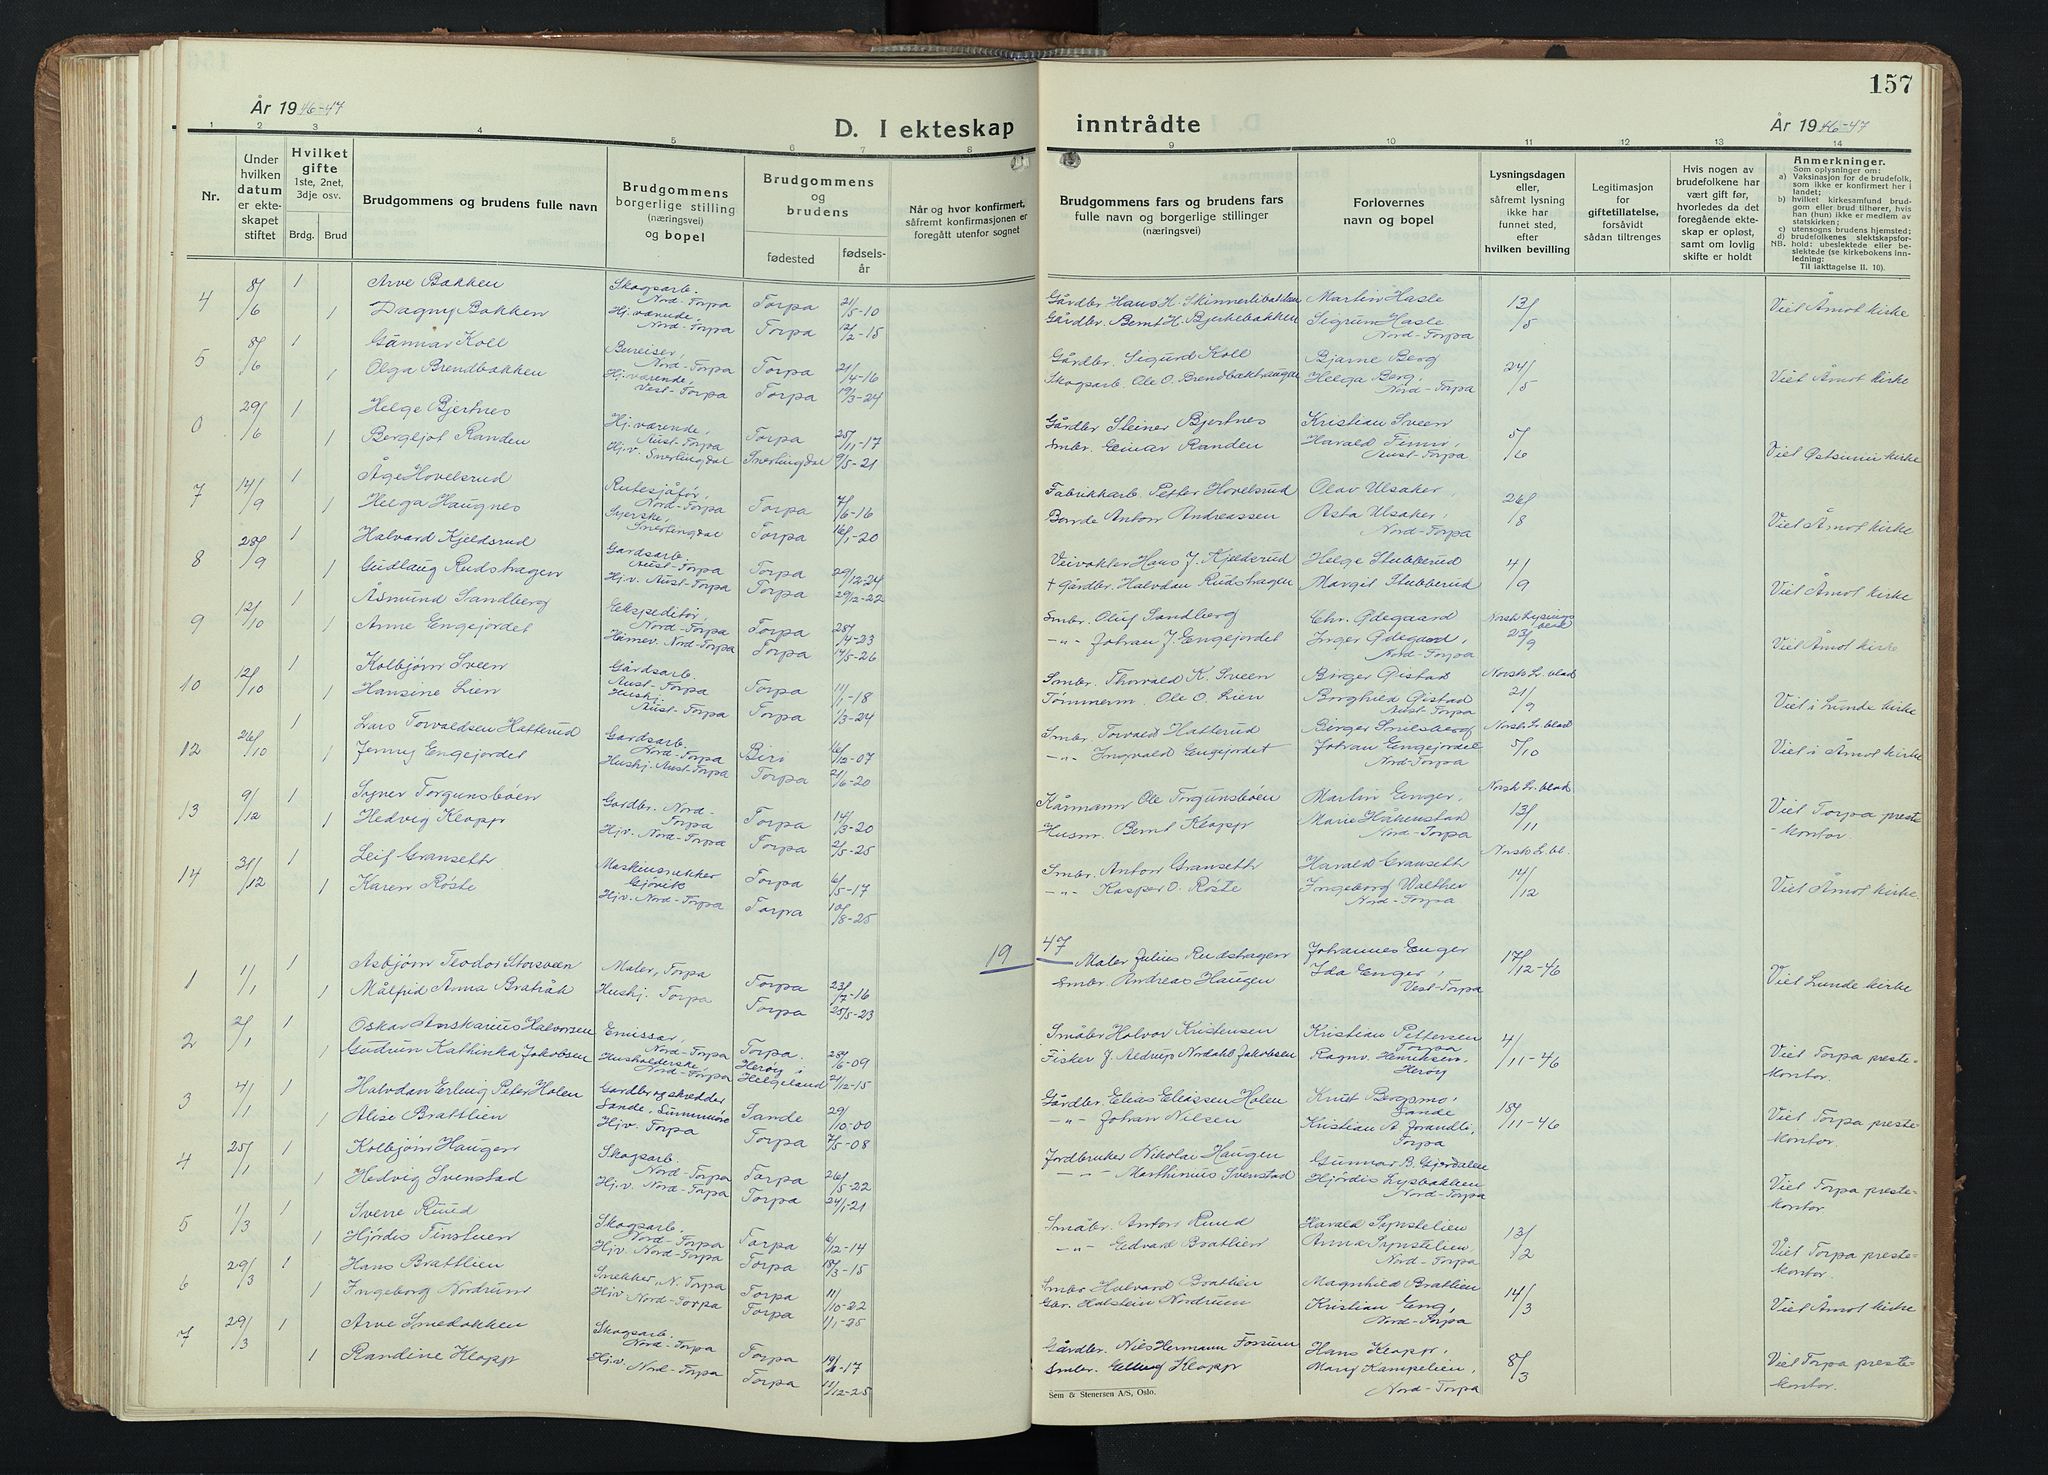 157
År 1946-47
D. I ekteskap inntrådte
År 1946-47
1 2 3 4 5 6 7 8 9 10 11 12 13 14
Nr.
Under hvilken datum er ekteskapet stiftet
Hvilket gifte 1ste, 2net, 3dje osv.
Brdg. Brud
Brudgommens og brudens fulle navn
Brudgommens borgerlige stilling (næringsvei) og bopel
Brudgommens og brudens
fødested
fødselsår
Når og hvor konfirmert, såfremt konfirmasjonen er foregått utenfor sognet
Brudgommens fars og brudens fars fulle navn og borgerlige stillinger (næringsvei)
Forlovernes navn og bopel
Lysningsdagen eller, såfremt lysning ikke har funnet sted, efter hvilken bevilling
Legitimasjon for giftetillatelse, forsåvidt sådan tiltrenges
Hvis nogen av brudefolkene har vært gift før, hvorledes da det foregående ekteskap er opløst, samt om lovlig skifte er holdt
Anmerkninger.
Som oplysninger om:
a) Vaksinasjon for de brudefolk, som ikke er konfirmert her i landet;
b) hvilket kirkesamfund brudgom eller brud tilhører, hvis han (hun) ikke er medlem av statskirken;
c) utensogns brudens hjemsted;
d) brudefolkenes slektskapsforhold: ubeslektede eller beslektede (se kirkebokens innledning:
NB.
Til iakttagelse II. 10).
4 8/6 1 Arve Bakken Skogsarb. Nord-Torpa Torpa 21/5-10 Gårdbr. Hans H. Skinnerlibakken Martin Hasle 13/5 Viet Åmot kirke
1 Dagny Bakken Hj.værende, Nord-Torpa Torpa 12/2-15 Gårdbr. Bernt H. Bjerkebakken Sigrun Hasle Nord-Torpa
5 8/6 1 Gunnar Koll Bureiser, Nord-Torpa Torpa 21/4-16 Gårdbr. Sigurd Koll Bjarne Berg 24/5 Viet Åmot kirke
1 Olga Brendbakken Hj.værende, Vest-Torpa Torpa 19/3-24 Skogsarb. Ole O. Brendbakkhaugen Helga Berg, Nord-Torpa
0 29/6 1 Helge Bjertnes Hj.værende, Aust-Torpa Torpa 25/11-17 Gårdbr Steiner Bjertnes Kristian Sveen 5/6 Viet Østsinni kirke
1 Bergljot Randen Hj.v. Snertingdal Snertingdal 9/5-21 Smbr. Einar Randen Harald Finni, Aust-Torpa
7 14/9 1 Åge Hovelsrud Rutesjåfør, Nord-Torpa Torpa 7/6-16 Fabrikkarb. Petter Hovelsrud Olav Ulsaker, 26/8 Viet Åmot kirke
1 Helga Haugnes Syerske, Snertingdal Torpa 16/1-20 Bonde Anton Andreassen Asta Ulsaker, Nord-Torpa
8 28/9 1 Halvard Kjeldsrud Gardsarb. Aust-Torpa Torpa 29/12-24 Veivokter Hans J. Kjeldsrud Helge Stubberud 4/9 Viet Åmot kirke
1 Gudlaug Rudshagen Hj.v. Aust-Torpa Torpa 29/12-22 † Gårdbr. Halvdan Rudshagen Margit Stubberud
9 12/10 1 Åsmund Sandberg Ekspeditør, Nord-Torpa Torpa 28/4-23 Smbr. Oluf Sandberg Chr. Ødegaard Norsk Lysingsblad 23/9 Viet Åmot kirke
1 Anne Engejordet Heimev. Nord-Torpa Torpa 17/5-26 -"- Johan J. Engejordet Inger Ødegaard, Nord-Torpa
10 12/10 1 Kolbjørn Sveen Gårdsarb. Aust-Torpa Torpa 11/1-18 Smbr. Thorvald K. Sveen Birger Øistad Norsk L. blad 21/9 Viet i Lunde kirke
1 Hansine Lien Hushj. Aust-Torpa Torpa 1/3-24 Tømmerm. Ole O. Lien Borghild Øistad Aust-Torpa
12 26/10 1 Lars Torvaldsen Hatterud Gardsarb. Nord-Torpa Biri 16/12-07 Smbr. Torvald Hatterud Birger Smilsberg Norsk L. blad 5/10 Viet i Åmot kirke
1 Jenny Engejordet Hushj. Aust-Torpa Torpa 21/6-20 -"- Ingvald Engejordet Johan Engejordet Nord-Torpa
13 9/12 1 Torgunsbøen Gardbr. Nord-Torpa Torpa 14/3-20 Kårmann Ole Torgunsbøen Martin Enger, Norsk L. blad 13/11 Viet Torpa prestekontor.
1 Hedvig Klopp Hjv. Nord-Torpa Torpa 2/5-25 Husm. Bernt Klopp Marie Håkenstad Nord-Torpa
14 31/12 1 Leif Gransett Maskinsnekker Gjøvik Torpa 6/5-17 Smbr. Anton Gransett Harald Gransett Norsk L. bl. 14/12 Viet Åmot kirke.
1 Karen Røste Hjv. Nord-Torpa Torpa 10/8-25 -"- Kasper O. Røste Ingeborg Walther Nord-Torpa
1947
1 1/1 1 Asbjørn Teodor Storsveen Maler, Torpa Torpa 23/7-16 Maler Julius Rudshagen Johannes Enger 17/12-46 Viet Lunde kirke
1 Målfrid Anna Bratråk Hushj. Torpa Torpa 25/5-23 Smbr. Andreas Haugen Ida Enger, Vest-Torpa
2 2/1 1 Oskar Anskarius Halvorsen Emissær, Nord-Torpa Torpa. 28/6-09 Småbr Halvor Kristensen Kristian Pettersen Torpa 4/11-46 Viet Torpa prestekontor.
1 Gudrun Kathinka Jakobsen Husholderske, Nord-Torpa Herøy i Helgeland 21/12-15 Fisker J. Aldrup Nordahl Jakobsen Ragnv. Henriksen, Herøy
3 4/1 1 Halvdan Erling Peter Holen Gardbr og skredder Sande, Sunnmøre Sande 29/10-00 Gårdbr. Elias Eliassen Holen Knut Bergsmo, Sande 18/11-46 Viet Torpa prestekontor.
1 Alise Brattlien Hjv. Torpa Torpa 7/5-08 -"- Johan Nilsen Kristian A. Jorandli, Torpa
4 25/1 1 Kolbjørn Haugen Skogsarb. Nord-Torpa Torpa 26/5-22 Jordbruker Nikolai Haugen Gunnar B. Gjerdalen Viet Torpa prestekontor.
1 Hedvig Svenstad Hj.v. Nord-Torpa Torpa 24/1-21 -"- Marthinius Svenstad Hjördis Lysbakken Nord-Torpa
5 1/3 1 Sverre Ruud Skogsarb. Nord-Torpa Torpa 6/12-14 Småbr. Anton Ruud Harald Synstelien 13/2 Viet Torpa prestekontor.
1 Hjördis Finstuen Hjv. Nord-Torpa Torpa 18/3-15 -"- Edvard Bratlien Anna Synstelien, Nord-Torpa
6 29/3 1 Hans Brattlien Snekker, N. Torpa Torpa 11/10-22 Smbr Halvard Bratlien Magnhild Brattlien 14/3 Viet Åmot kirke
1 Ingeborg Nordrum Hjv Nord-Torpa Torpa 11/1-25 Gbr. Halstein Nordrum Kristian Eng, Nord-Torpa
7 29/3 1 Arve Smedakken Skogsarb. Nord-Torpa Torpa 19/6-17 Gårdbr. Nils Hermann Forsunn Hans Klopp, 8/3 Viet Torpa prestekontor.
1 Randine Klopp Hj.v. Nord-Torpa Torpa 11/12-25 Smbr. Klopp Mary Kampelien, Nord-Torpa
Sem & Stenersen A/S, Oslo.